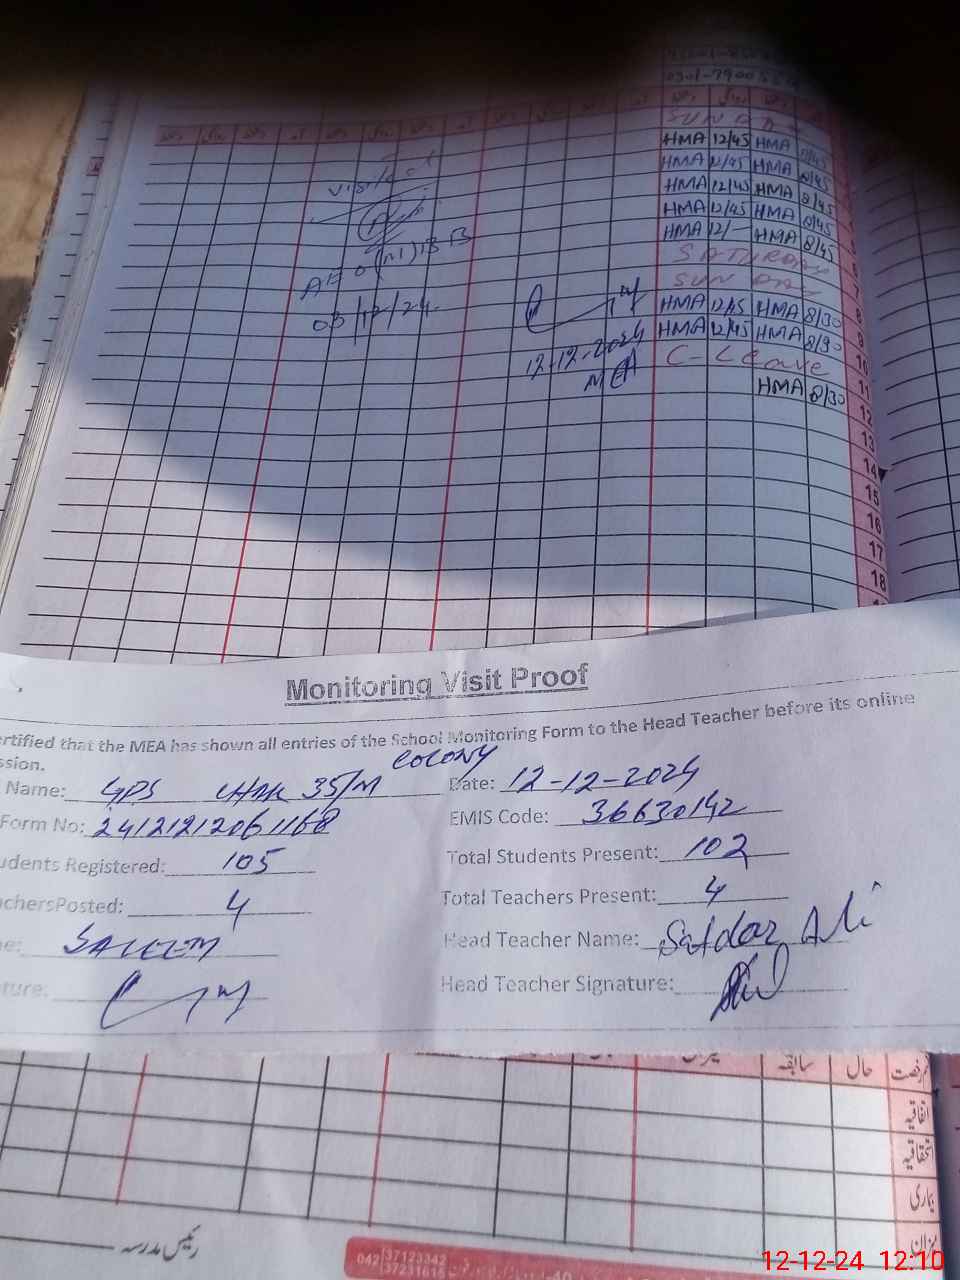 0301-7900
دستخط روانگی دستخط آمد دستخط روانگی دستخط آمد دستخط روانگی دستخط
SUNDAY
HMA 12/45 HMA 8/45
HMA 12/45 HMA 8/45
HMA 12/45 HMA 8/45
HMA 12/45 HMA 8/45
HMA 12/- HMA 8/45
SATURDAY
SUNDAY
HMA 12/45 HMA 8/30
HMA 12/45 HMA 8/30
C-Leave
HMA 8/30
Visited
AEO (M) 18 B
03/12/24
12-12-2024
MEA
6
7
8
9
10
11
12
13
14
15
16
17
18
Monitoring Visit Proof
ertified that the MEA has shown all entries of the School Monitoring Form to the Head Teacher before its online
ssion.
Name: GPS CHAK 35/M COLONY Date: 12-12-2024
Form No: 2412121206 1168 EMIS Code: 36630142
udents Registered: 105 Total Students Present: 102
achersPosted: 4 Total Teachers Present: 4
e: SALEEM Head Teacher Name: Safdar Ali
ture: Head Teacher Signature:
سابقہ حال رخصت
اتفاقیہ
استحقاقیہ
بیماری
میزان
رئیس مدرسہ
042 37123342
37231615
12-12-24 12:10